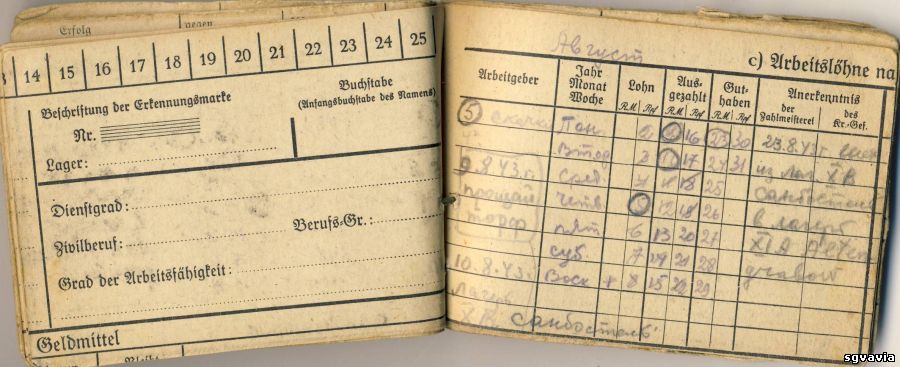 Erfolg
gegen
14 15 16 17 18 19 20 21 22 23 24 25
Beschriftung der Erkennungsmarke
Nr.
Lager:
Buchstabe
(Anfangsbuchstabe des Namens)
Dienstgrad:
Berufs-Gr.:
Zivilberuf:
Grad der Arbeitsfähigkeit:
Geldmittel
Август
c) Arbeitslöhne na
Arbeitgeber
Jahr Monat Woche
Lohn RM Rpf
Ausgezahlt RM Rpf
Guthaben RM Rpf
Anerkenntnis
der Zahlmeisterei
des Kr.-Gef.
5 Пон. 2 9 16 23 30 23.8.43г.
Втор 3 17 24 31 из лаг XB
9.8.43.г. Сред 4 11 18 25 санбостель
прощай Четв 5 12 19 26 в лагерь
торф пят 6 13 20 27 XI A
суб. 7 14 21 28
10.8.43. Воск 1 8 15 22 29
Лагерь
XB санбостель
sgvavia